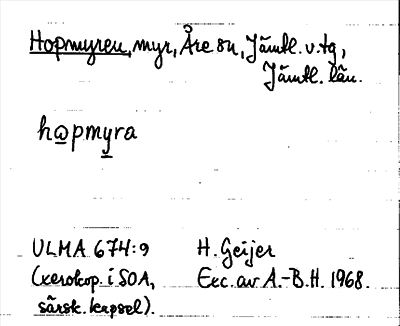 Hopmyren, myr, Åre sn, Jämtl. v. tg,
Jämtl. län.
hopmyra
ULMA 674:9
(xerokop. i SOA,
särsk. kapsel).
H. Geijer
Exc. av A.-B.H. 1968.